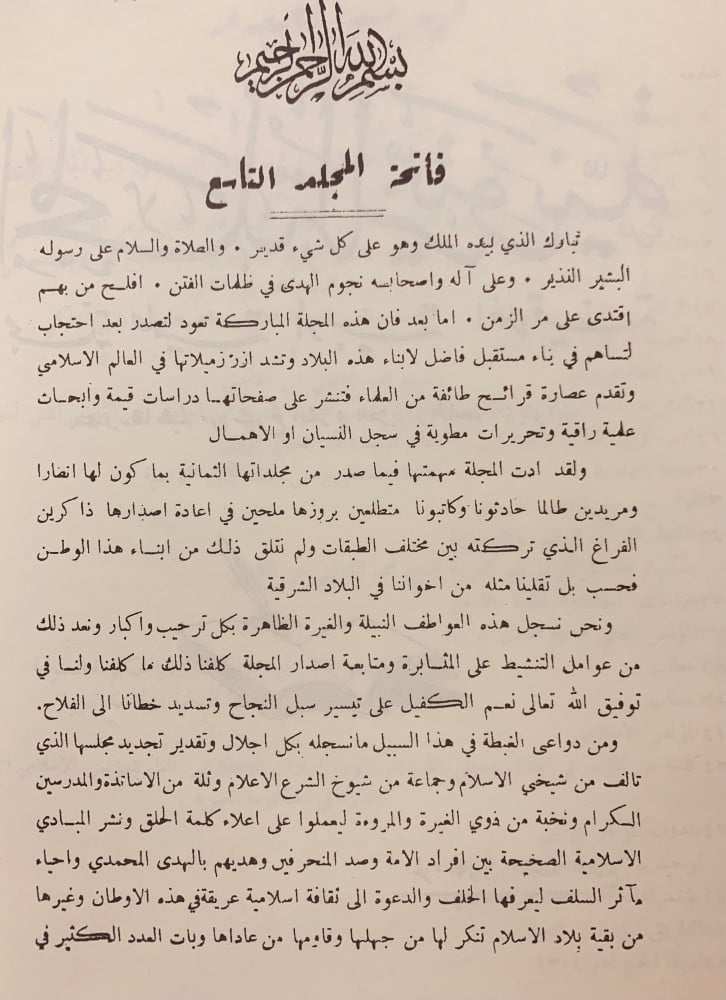 بسم الله الرحمن الرحيم
فاتحة المجلد التاسع
تبارك الذي بيده الملك وهو على كل شيء قدير . والصلاة والسلام على رسوله
البشير النذير . وعلى آله واصحابه نجوم الهدى في ظلمات الفتن . افلح من بهم
اقتدى على مر الزمن . اما بعد فان هذه المجلة المباركة تعود لتصدر بعد احتجاب
لتساهم في بناء مستقبل فاضل لابناء هذه البلاد وتشد ازر زميلاتها في العالم الاسلامي
وتقدم عصارة قرائح طائفة من العلماء فتنشر على صفحاتها دراسات قيمة وابحاث
علمية راقية وتحريرات مطوية في سجل النسيان او الاهمال
ولقد ادت المجلة مهمتها فيما صدر من مجلداتها الثمانية بما كون لها انصارا
ومريدين طالما حادثونا وكاتبونا متطلعين بروزها ملحين في اعادة اصدارها ذاكرين
الفراغ الذي تركته بين مختلف الطبقات ولم نتلق ذلك من ابناء هذا الوطن
فحسب بل تقلينا مثله من اخواننا في البلاد الشرقية
ونحن نسجل هذه العواطف النبيلة والغيرة الظاهرة بكل ترحيب واكبار ونعد ذلك
من عوامل التنشيط على المثابرة ومتابعة اصدار المجلة كلفنا ذلك ما كلفنا ولنا في
توفيق الله تعالى نعم الكفيل على تيسير سبل النجاح وتسديد خطانا الى الفلاح.
ومن دواعى الغبطة في هذا السبيل مانسجله بكل اجلال وتقدير تجديد مجلسها الذي
تالف من شيخي الاسلام وجماعة من شيوخ الشرع الاعلام وثلة من الاساتذة والمدرسين
الكرام ونخبة من ذوي الغيرة والمروءة ليعملوا على اعلاء كلمة الحلق ونشر المبادي
الاسلامية الصحيحة بين افراد الامة وصد المنحرفين وهديهم بالهدى المحمدي واحياء
مآثر السلف ليعرفها الخلف والدعوة الى ثقافة اسلامية عريقة في هذه الاوطان وغيرها
من بقية بلاد الاسلام تنكر لها من جهلها وقاومها من عاداها وبات العدد الكثير في